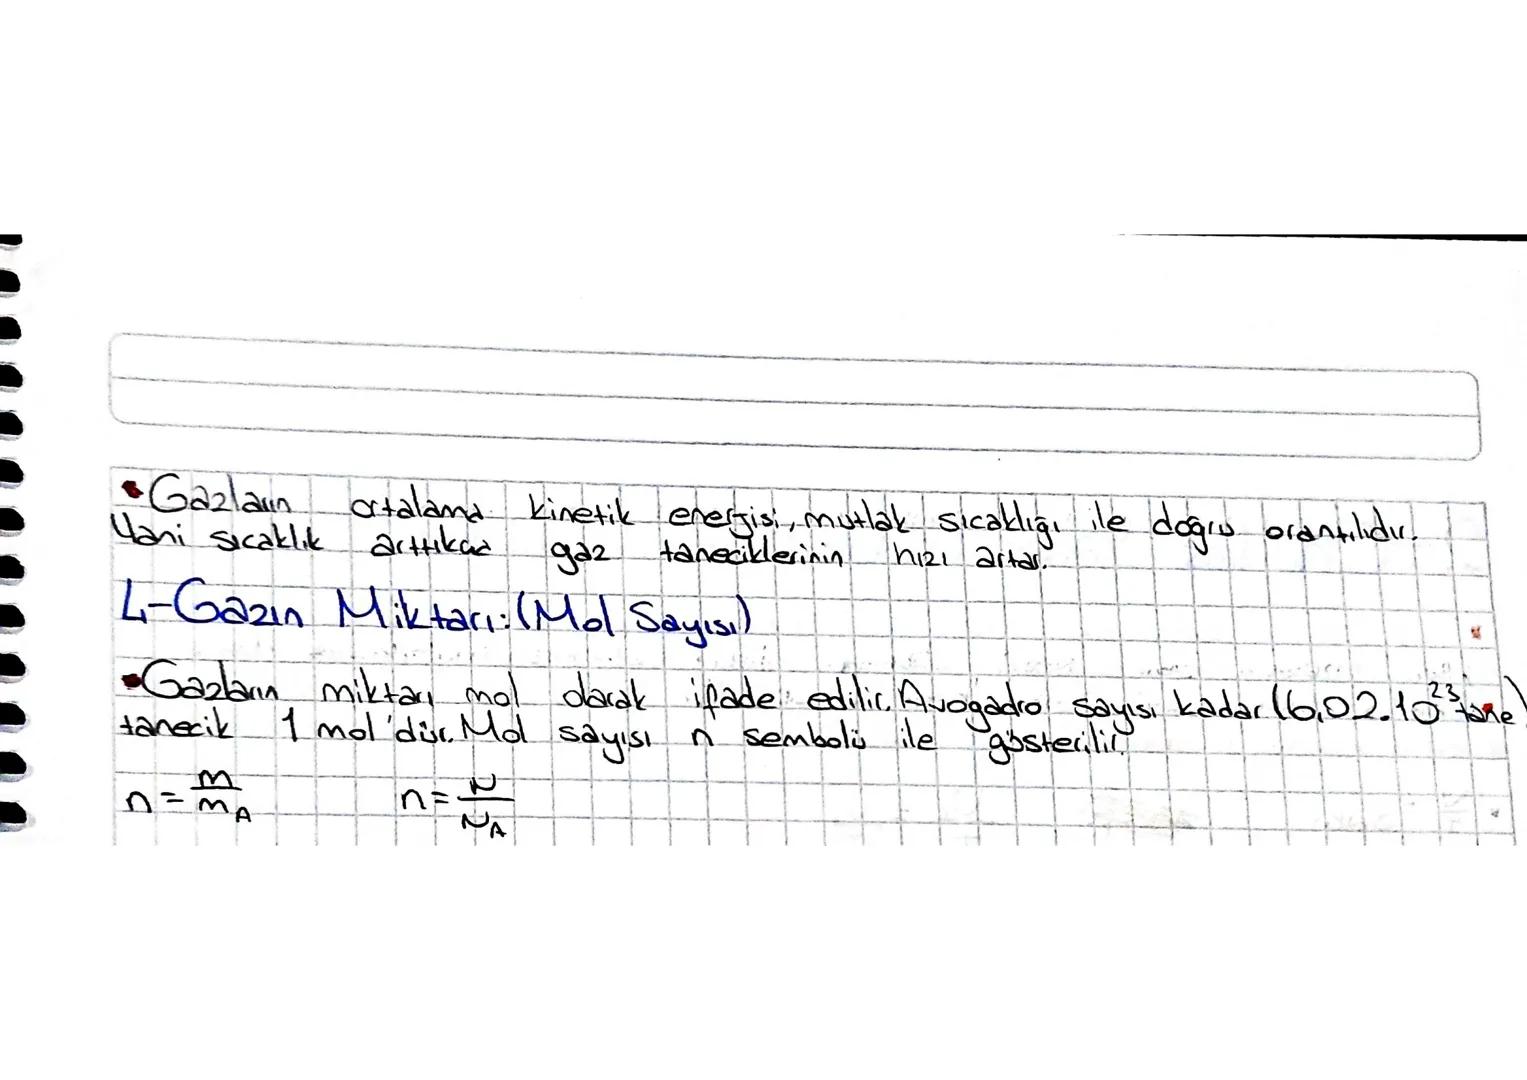 • Gazların ortalama kinetik enerjisi, mutlak sıcaklığı ile doğru orantılıdır.
Yani sıcaklık arttıkça gaz taneciklerinin hızı artar.
4-Gazın Miktarı: (Mol Sayısı)
• Gazların miktarı mol olarak ifade edilir. Avogadro sayısı kadar (6,02.10²³ tane)
tanecik 1 mol'dür. Mol sayısı n sembolü ile gösterilir.
n = m/mA n = N/NA